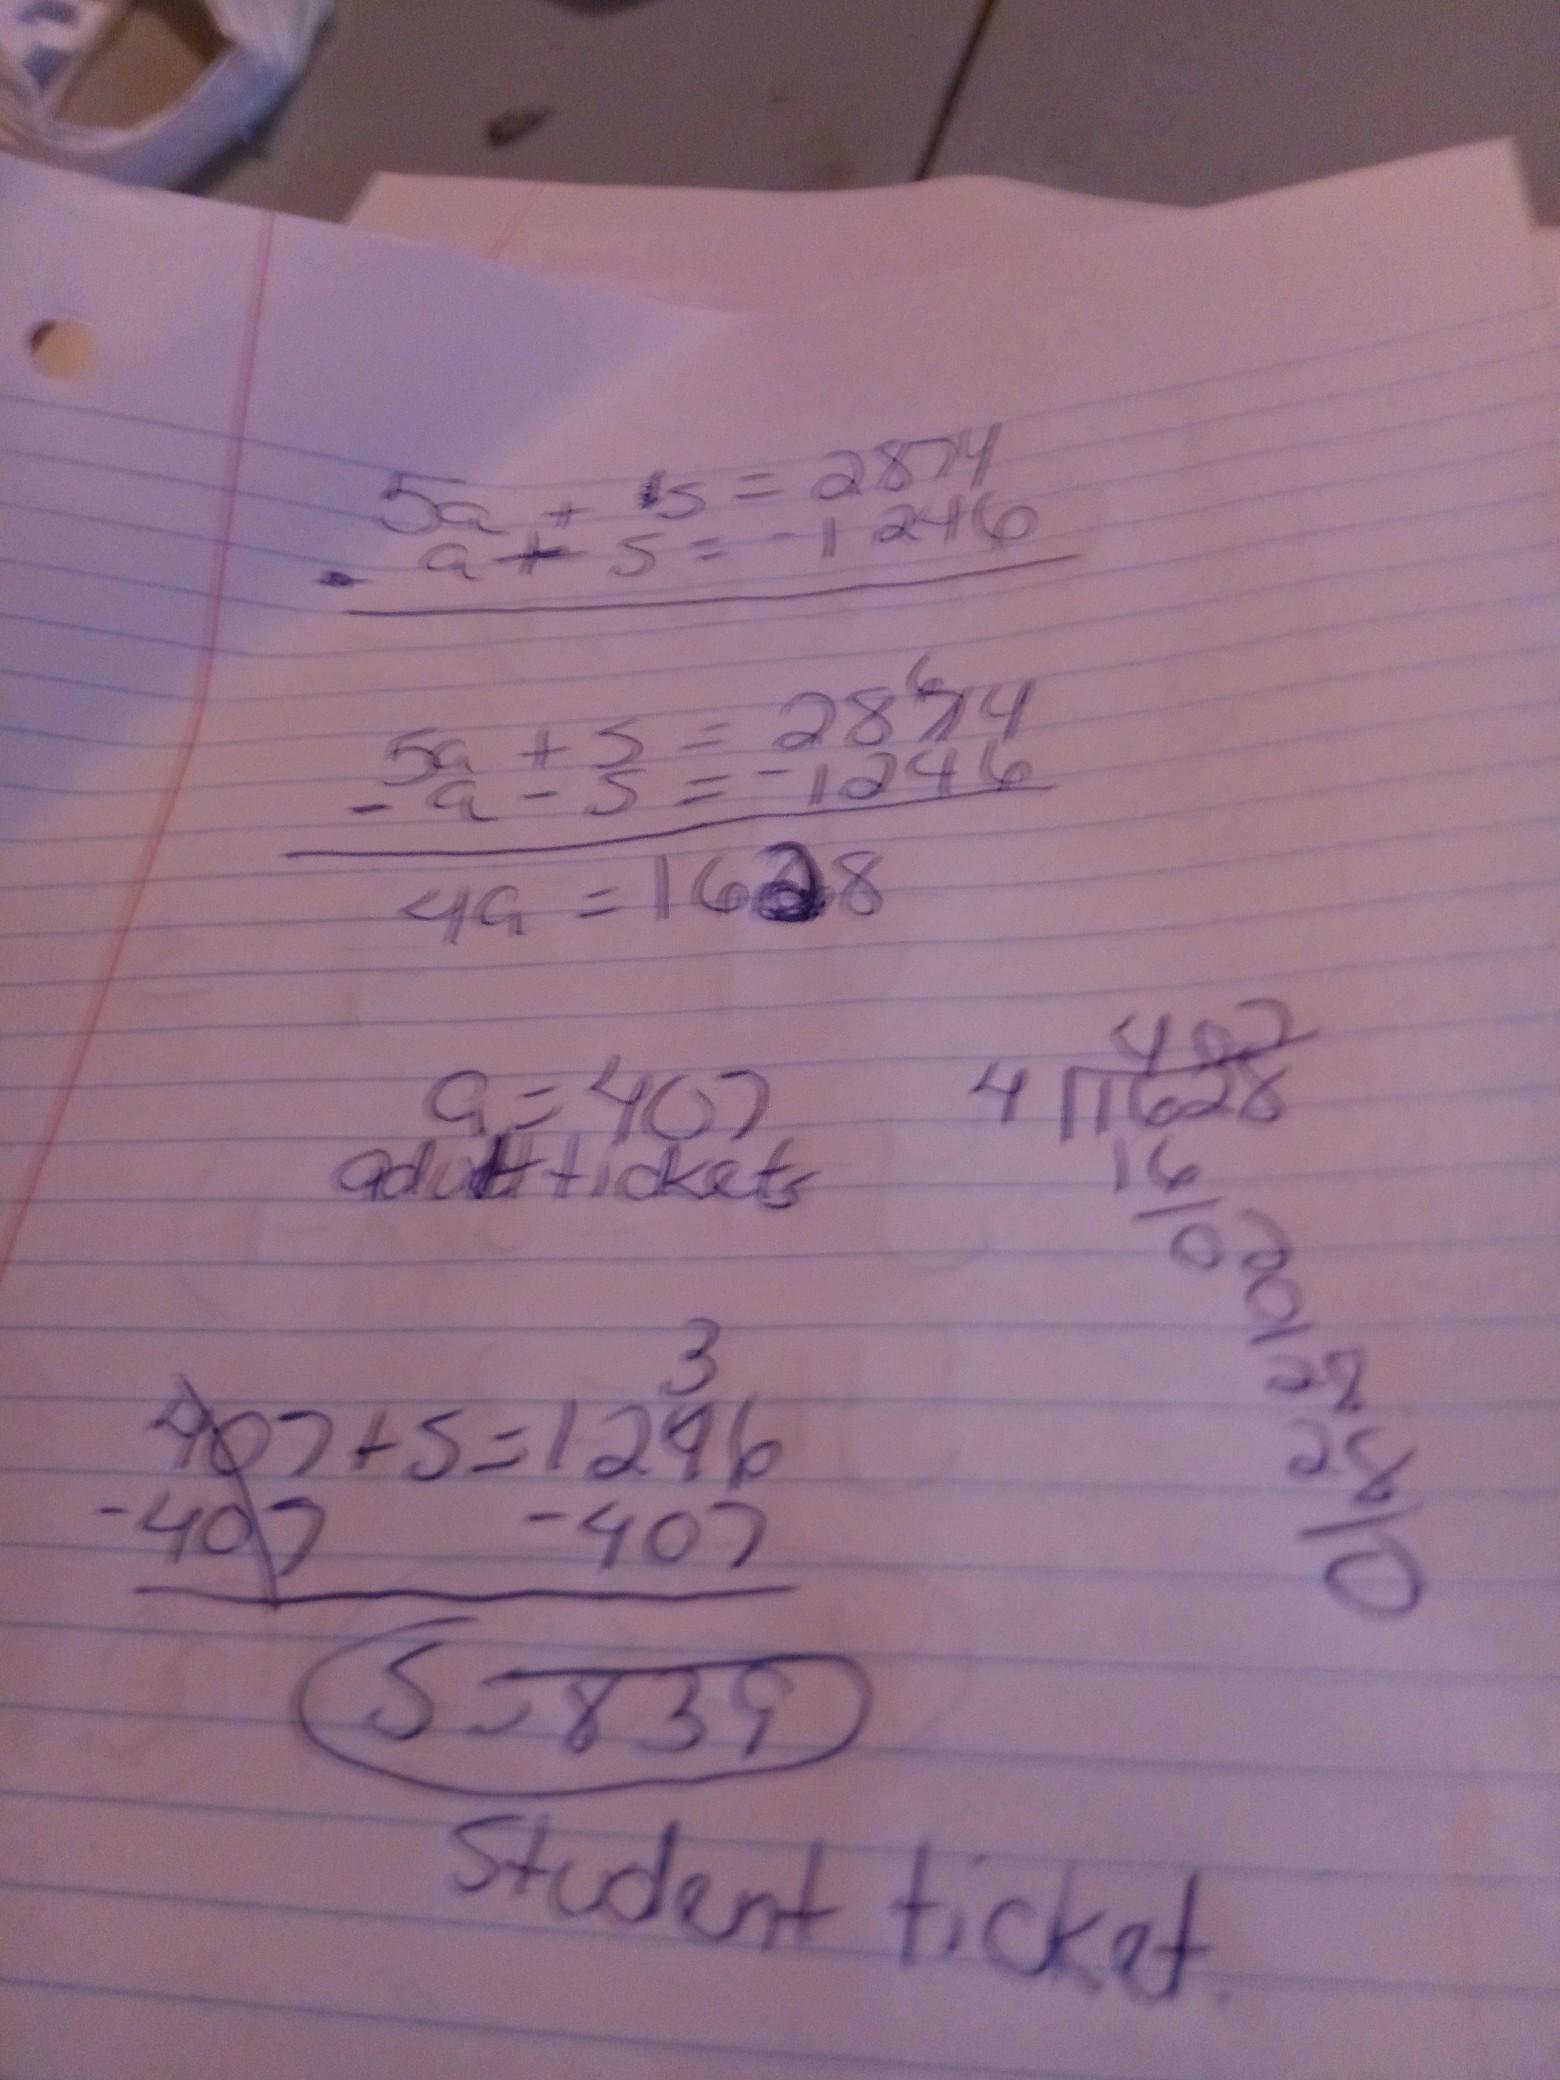 5a + s = 2874
- a + s = -1246
6
5a + s = 2874
- a - s = -1246
4a = 1628
a = 407
adult tickets
407
4 1628
16
02
0
28
28
0
3
407 + s = 1246
-407 -407
s = 839
Student ticket.